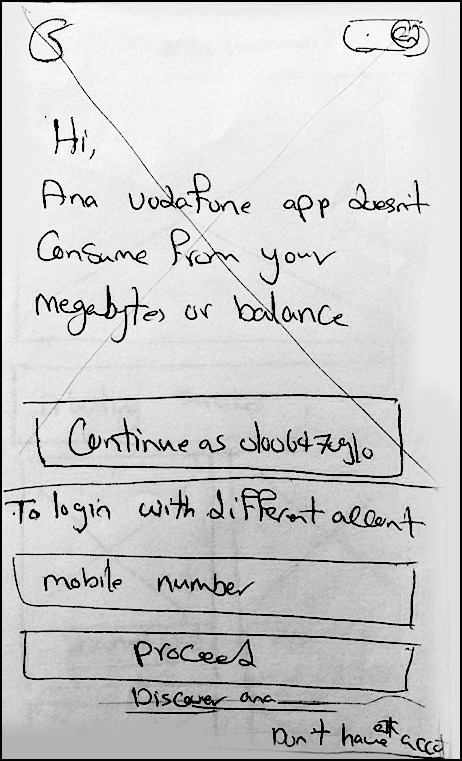 Hi,
Ana vodafone app doesn't
Consume from your
megabytes or balance
Continue as
To login with different
mobile number
proceed
Discover ana
Don't have